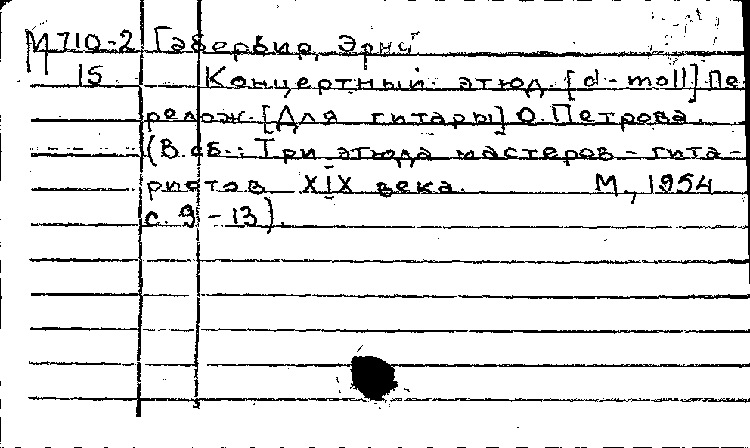 М710-2 Габербир, Эрнй
15 Концертный этюд. [d-moll] Пе
релож. [Для гитары] О. Петрова.
(В сб.: Три этюда мастеров-гита-
ристов XIX века. М., 1954
с. 9-13).